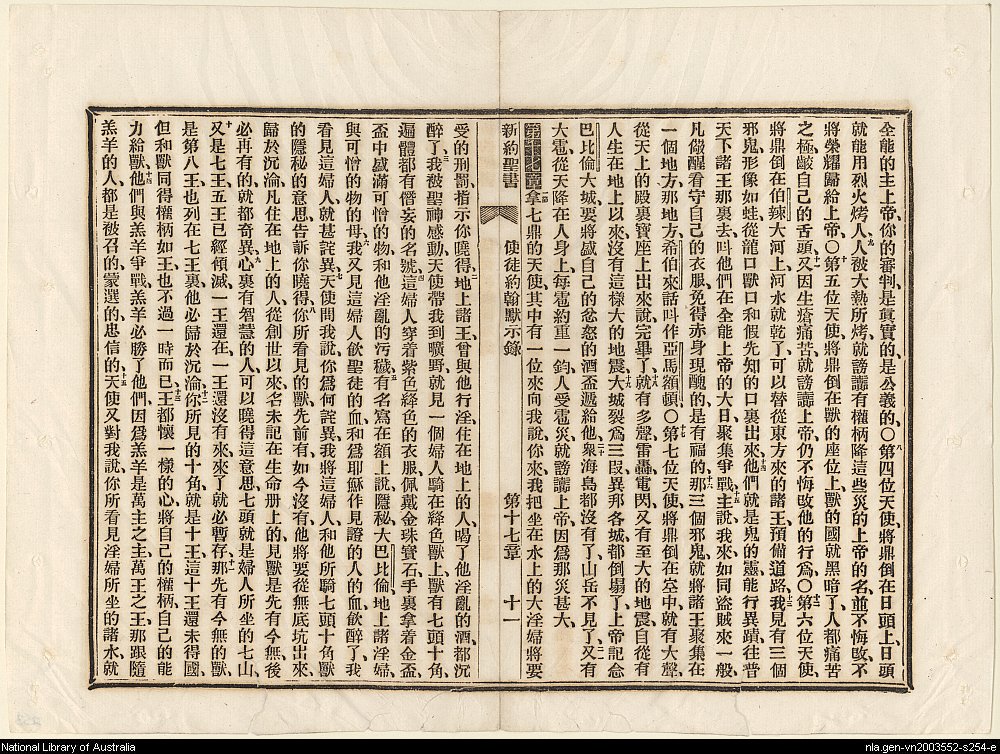 全能的主上帝、你的審判是眞實的、是公義的、〇八第四位天使、將鼎倒在日頭上、日頭
就能用烈火烤人、九人被大熱所烤、就謗讟有權柄降這些災的上帝的名、並不悔改、不
將榮耀歸給上帝〇十第五位天使、將鼎倒在獸的座位上、獸的國就黑暗了、人都痛苦
之極、齩自己的舌頭、十一又因生瘡痛苦、就謗讟上帝、仍不悔改他的行爲、〇十二第六位天使、
將鼎倒在伯辣大河上、河水就乾了、可以替從東方來的諸王、預備道路、十三我見有三個
邪鬼、形像如蛙、從龍口獸口和假先知的口裏出來、十四他們就是鬼的靈、能行異蹟、往普
天下諸王那裏去、呌他們在全能上帝的大日、聚集爭戰、十五主說、我來、如同盜賊來一般、
凡儆醒看守自己的衣服、免得赤身現醜的、是有福的、十六那三個邪鬼、就將諸王聚集在
一個地方、那地方、希伯來話呌作亞馬額頓〇十七第七位天使、將鼎倒在空中、就有大聲、
從天上的殿裏寶座上出來、說、完畢了、十八就有多聲雷轟電閃、又有至大的地震、自從有
人生在地上以來、沒有這樣大的地震、十九大城裂爲三叚、異邦各城都倒塌了、上帝記念
巴比倫大城、要將盛自己的忿怒的酒盃遞給他、二十衆海島都沒有了、山岳不見了、二一又有
大雹從天降在人身上、每雹約重一鈞、人受雹災、就謗讟上帝、因爲那災甚大、
第十七章一節拿七鼎的天使、其中有一位來向我說、你來、我把坐在水上的大淫婦將要
新約聖書
使徒約翰默示錄
第十七章
十一
受的刑罰、指示你曉得、二地上諸王、曾與他行淫、住在地上的人、喝了他淫亂的酒、都沉
醉了、三我被聖神感動、天使帶我到曠野、就見一個婦人騎在絳色獸上、獸有七頭十角、
遍體都有僭妄的名號、四這婦人穿着紫色絳色的衣服、佩戴金珠寶石、手裏拿着金盃、
盃中盛滿可憎的物、和他淫亂的污穢、五有名寫在額上說、隱秘大巴比倫、地上諸淫婦、
與可憎的物的母、六我又見這婦人飲聖徒的血、和爲耶穌作見證的人的血、飲醉了、我
看見這婦人、就甚詫異、七天使問我說、你爲何詫異、我將這婦人、和他所騎七頭十角獸
的隱秘的意思、告訴你曉得、八你所看見的獸、先前有、如今沒有、他將要從無底坑出來
歸於沉淪、凡住在地上的人、從創世以來、名未記在生命册上的、見獸是先有今無後
必再有的、就都奇異、九心裏有智慧的人、可以曉得這意思、七頭就是婦人所坐的七山、
十又是七王、五王已經傾滅、一王還在、一王還沒有來、來了就必暫存、十一那先有今無的獸、
是第八王、也列在七王裏、他必歸於沉淪、十二你所見的十角、就是十王、這十王還未得國、
但和獸同得權柄如王、也不過一時而已、十三王都懷一樣的心、將自己的權柄、自己的能
力給獸、十四他們與羔羊爭戰、羔羊必勝了他們、因爲羔羊是萬主之主、萬王之王、那跟隨
羔羊的人、都是被召的、蒙選的、忠信的、十五天使又對我說、你所看見淫婦所坐的諸水、就
National Library of Australia
nla.gen-vn2003552-s254-e